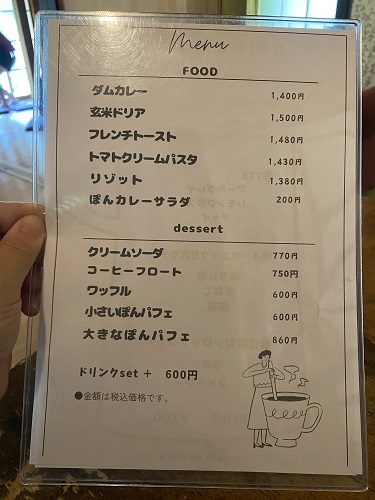 Menu
FOOD
ダムカレー 1,400円
玄米ドリア 1,500円
フレンチトースト 1,480円
トマトクリームパスタ 1,430円
リゾット 1,380円
ぽんカレーサラダ 200円
dessert
クリームソーダ 770円
コーヒーフロート 750円
ワッフル 600円
小さいぽんパフェ 600円
大きなぽんパフェ 860円
ドリンクset + 600円
●金額は税込価格です。